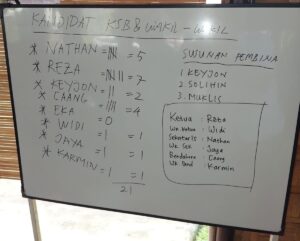 KANDIDAT KSB & WAKIL - WAKIL
* NATHAN = 5
* REZA = 7
* KEYJON = || = 2
* CAANG = |||| = 4
* EKA
* WIDI = 0
* JAYA = 1 = 1
* KARMIN = 1 = 1
21
SUSUNAN PEMBINA
1. KEYJON
2. SOLIHIN
3. MUKLIS
Ketua : Reza
Wk. Ketua : Widi
Sekretaris : Nathan
Wk. Sek : Jaya
Bendahara : Caang
Wk. Bend : Karmin